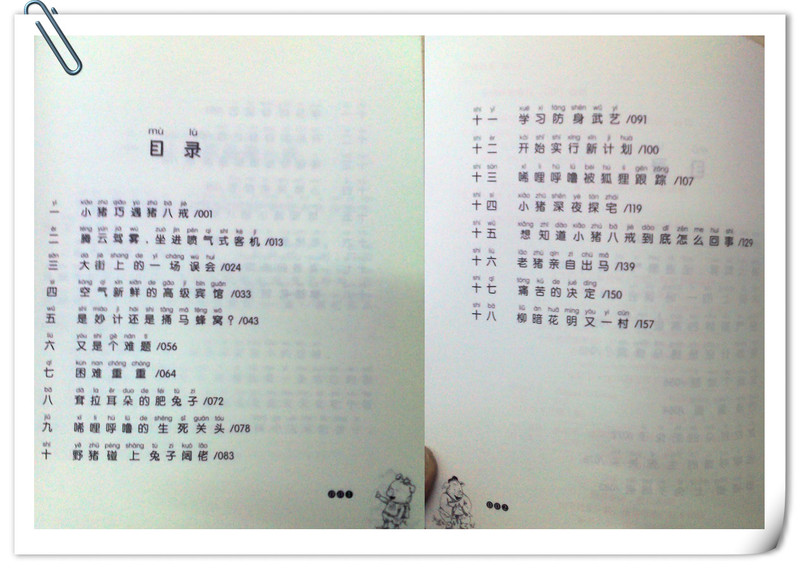 mù lù
目 录
yī xiǎo zhū qiǎo yù zhū bā jiè
一 小猪巧遇猪八戒/001
èr téng yún jià wù zuò jìn pēn qì shì kè jī
二 腾云驾雾，坐进喷气式客机/013
sān dà jiē shang de yì chǎng wù huì
三 大街上的一场误会/024
sì kōng qì xīn xiān de gāo jí bīn guǎn
四 空气新鲜的高级宾馆/033
wǔ shì miào jì hái shì tǒng mǎ fēng wō
五 是妙计还是捅马蜂窝？/043
liù yòu shì gè nán tí
六 又是个难题/056
qī kùn nan chóng chóng
七 困难重重/064
bā dā la ěr duo de féi tù zi
八 耷拉耳朵的肥兔子/072
jiǔ xī li hū lū de shēng sǐ guān tóu
九 唏哩呼噜的生死关头/078
shí yě zhū pèng shàng tù zi kuò lǎo
十 野猪碰上兔子阔佬/083
001
shí yī xué xí fáng shēn wǔ yì
十一 学习防身武艺/091
shí èr kāi shǐ shí xíng xīn jì huà
十二 开始实行新计划/100
shí sān xī li hū lū bèi hú li gēn zōng
十三 唏哩呼噜被狐狸跟踪/107
shí sì xiǎo zhū shēn yè tàn zhái
十四 小猪深夜探宅/119
shí wǔ xiǎng zhī dào xiǎo zhū bā jiè dào dǐ zěn me huí shì
十五 想知道小猪八戒到底怎么回事/129
shí liù lǎo zhū qīn zì chū mǎ
十六 老猪亲自出马/139
shí qī tòng kǔ de jué dìng
十七 痛苦的决定/150
shí bā liǔ àn huā míng yòu yì cūn
十八 柳暗花明又一村/157
002